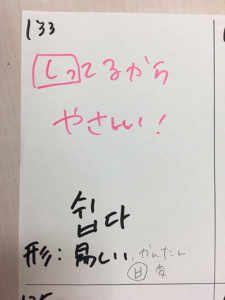 133
しってるから
やさしい!
쉽다
形: 易しい, かんたん